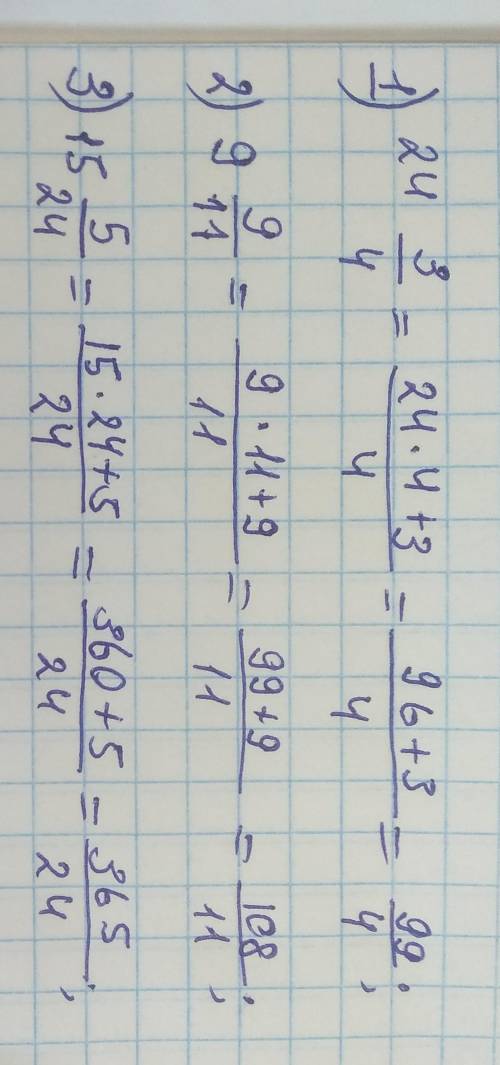 1) 24 3/4 = (24·4+3)/4 = (96+3)/4 = 99/4;
2) 9 9/11 = (9·11+9)/11 = (99+9)/11 = 108/11;
3) 15 5/24 = (15·24+5)/24 = (360+5)/24 = 365/24;